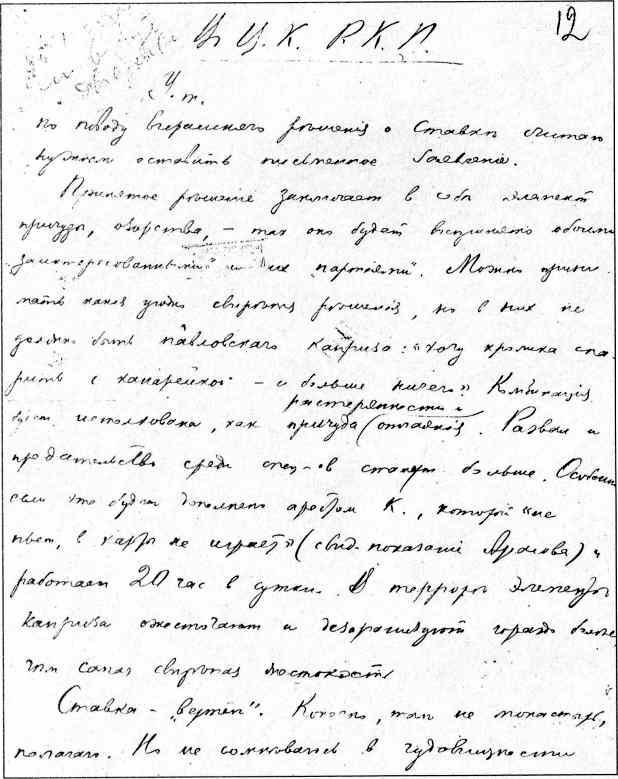 12
В Ц.К. Р.К.П.
Ув. т.
По поводу вчерашнего рѣшенія о Ставкѣ считаю
нужным оставить письменное заявленіе.
Принятое рѣшеніе заключает в себѣ элемент
причуды, озорства, – так оно будет воспринято обоими
заинтересованными" и "их партіями". Можно прини
мать какія угодно свирѣпыя рѣшенія, но в них не
должно быть павловскаго каприза: "хочу кролика спа
рить с канарейкой – и больше ничего". Комбинація
будет истолкована, как причуда (растерянности и отчаянія. Развал и
предательство среди спец-ов станет больше. Особенно
если это будет дополнено арестом К., который "не
пьет, в карты не играет" (свид. показаній) и
работает 20 час в сутки. В террорѣ элементы
каприза ожесточают и дезорганизуют гораздо больше
чѣм самая свирѣпая жестокость
Ставка – "вертеп". Конечно, там не монастырь,
полагаю. Но не сомнѣваюсь в чудовищности